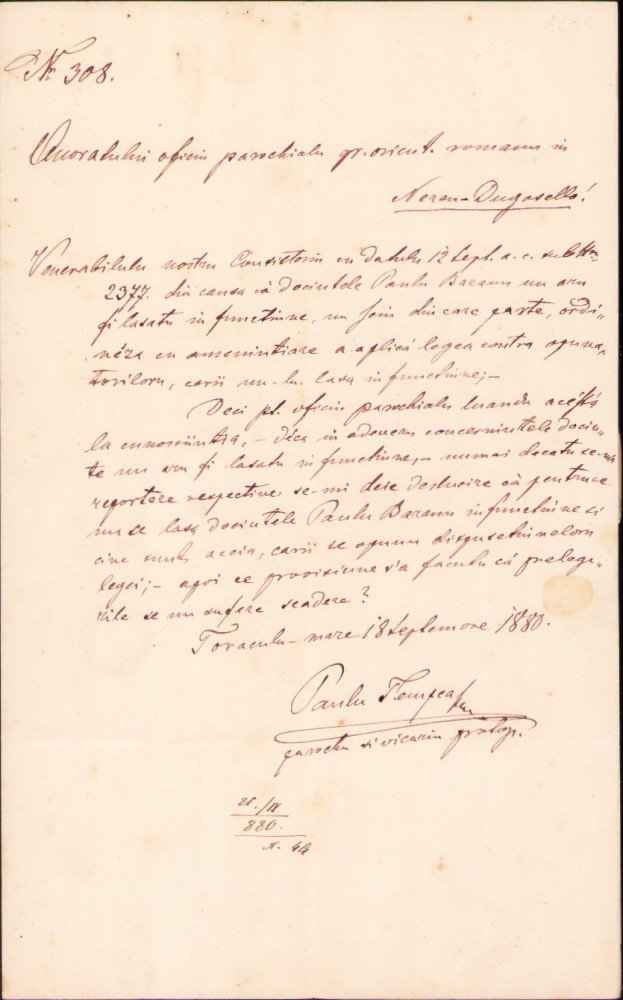 Nr. 308.
Onoratului oficiu parochialu gr. orient. romanu in
Nereu-Dugosello!
Venerabilulu nostru Consistoriu cu datulu 12 Sept. a. c. sub Nro
2377. din causa că docintele Paulu Baranu nu aru
fi lasatu in functiune, in care parte, ordi-
néza cu amenintiare a aplicá legea contra opuna-
torilor, carii nu-lu lasa in functiune;-
Deci pt. oficiu parochialu luandu acésta
la cunosciintia, – déca in adeveru concernintele docin-
te nu aru fi lasatu in functiune, – numai decatu se-mi
reporteze respective se-mi deie deslucire că pentruce
nu se lasa docintele Paulu Baranu in functiune si
cine sunt aceia, carii se opunu dispusetiunelor
legei; – apoi ce provisiune s'a facutu că prelege-
rile se nu sufere scadere?
Toraculu-mare 18 Septemvre 1880.
Paulu Tempea
parochu si vicariu protop.
21./IX
880.
N. 44